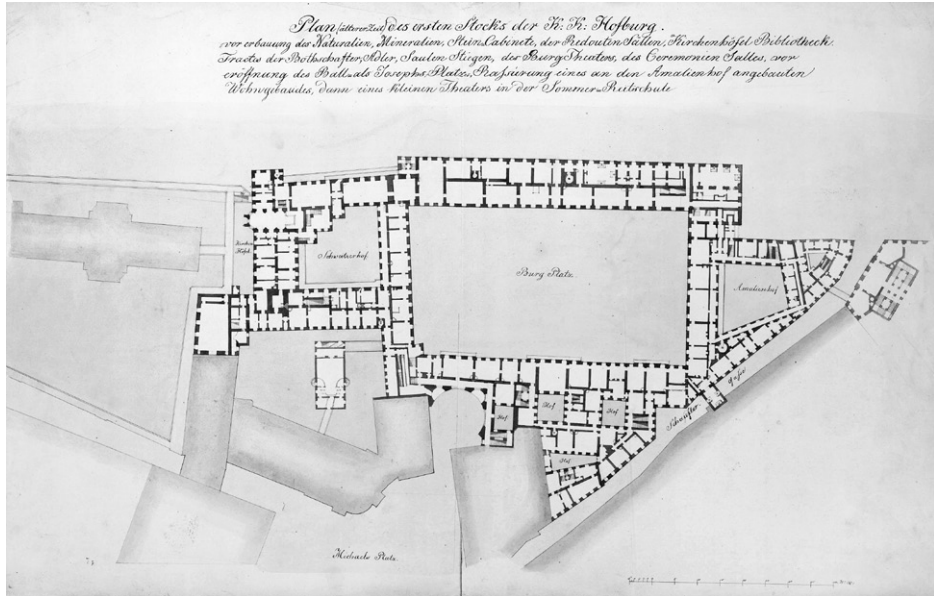 Plan (älterer Zeit) des ersten Stocks der K: K: Hofburg.
vor erbauung des Naturalien, Mineralien, Stein, Cabinets, der Redouten Sällen, Kirchenhöfel Bibliotheck
Tractes der Bothschafter, Adler, Saulen Stiegen, der Burg Theaters, des Ceremonien Saales, vor
eröffnung des Ball- als Josephs Platz, Rassierung eines an den Amalienhof angebauten
Wohngebaudes, dann eines kleinen Theaters in der Sommer-Reitschule
Schweizerhof
Burg Platz.
Amalienhof
Hof
Hof
Hof
Hof
Schaufler Gasse
Michaels Platz.